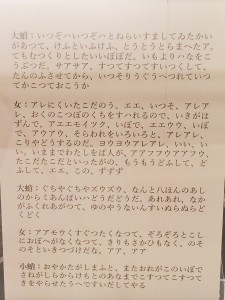 大蛸：いつぞハいつぞハとねらいすましてゐたかい
があつて、けふといふけふ、とうとうとらまへたア。
てもむつくりとしたいいぼぼだ。いもよりハなをこ
のみつぶだ。サアサア、すつてすつてすいつくして、
たんのふさせてから、いつそりうぐうへつれていつ
てかこつておこうか
女：アレにくいたこだのう。エエ、いつそ、アレア
レ、おくのこつぼのくちをすハれるので、いきがは
づんで、アエエモイツク、いぼで、エエウウ、いぼ
で、アウアウ、そらわれをいろいろと、アレアレ、
こりやどうするのだ。ヨウヨウアレアレ、いい、い
い、いままでわたしをば人が、アアフフウアアフウ、
たこだたこだといつたがの、もうもうどふして、ど
ふして、エエ、この、ずずず
大蛸：ぐちやぐちやズウズウ、なんと八ほんのあし
のからミあんばいハどうだどうだ。あれあれ、なか
がふくれあがつて、ゆのやうないんすいぬらぬらど
くどく
女：アアモウくすぐつたくなつて、ぞろぞろとこし
におぼへがなくなつて、きりもさかひもなく、のそ
のそといきつづけだな、アア、アア
小蛸：おやかたがしまふと、またおれがこのいぼで
さねがしらからけもとのあなまでこすつてこすつて
きをやらせたうへですいだしてやる